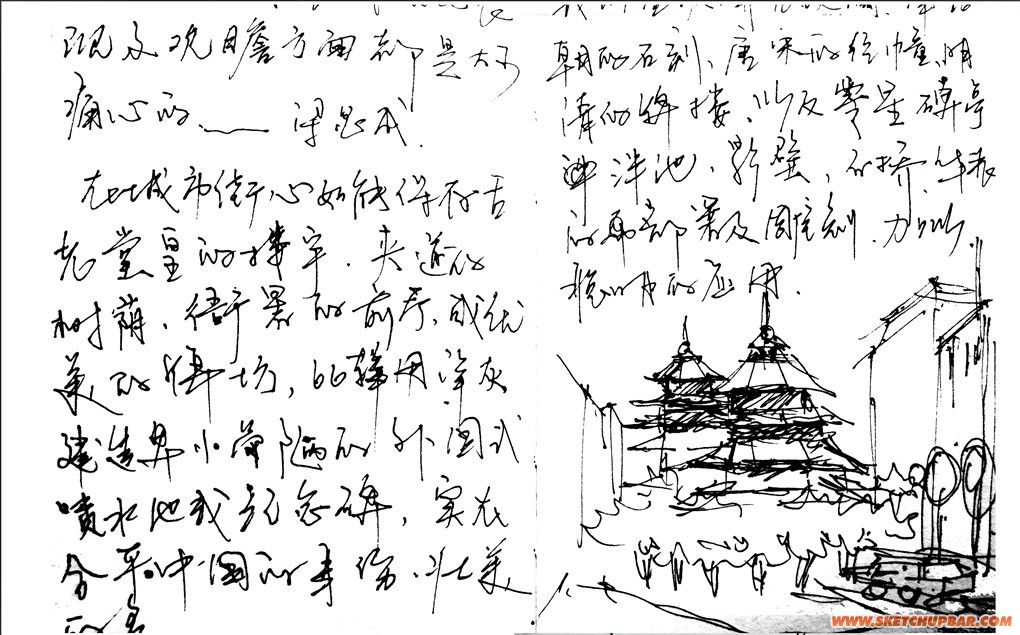 现及观瞻方面都是大可
痛心的 —— 梁思成.
在城市街心如能保存古
老堂皇的楼宇.夹道的
树荫、衙署的前庭、或优
美的牌坊，比较用洋灰
建造卑小简陋的外国式
喷水池或纪念碑，实在
合乎中国的身份.壮美
得多
朝的石刻、唐宋的经幢、明
清的牌楼、以及零星碑亭
泮池、影壁、石桥、华表
的部署及雕刻.加以
聪明的应用.
WWW.SKETCHUPBAR.COM